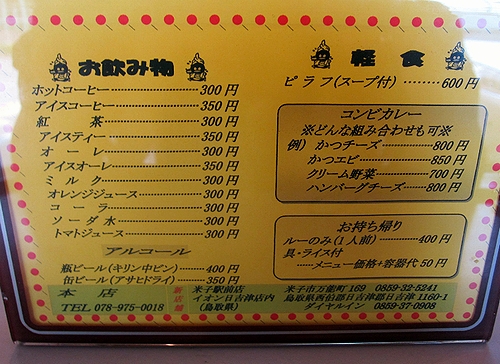 お飲み物
ホットコーヒー 300円
アイスコーヒー 350円
紅茶 300円
アイスティー 350円
オーレ 300円
アイスオーレ 350円
ミルク 300円
オレンジジュース 300円
コーラ 300円
ソーダ水 300円
トマトジュース 300円
アルコール
瓶ビール(キリン中ビン) 400円
缶ビール(アサヒドライ) 350円
軽食
ピラフ(スープ付) 600円
コンビカレー
※どんな組み合わせも可※
例) かつチーズ 800円
かつエビ 850円
クリーム野菜 700円
ハンバーグチーズ 800円
お持ち帰り
ルーのみ(1人前) 400円
具・ライス付
メニュー価格+容器代50円
本店
TEL 078-975-0018
米子駅前店 米子市万能町169 0859-32-5241
イオン日吉津店内 鳥取県西伯郡日吉津郡日吉津1160-1
(鳥取県) ダイヤルイン 0859-37-0908